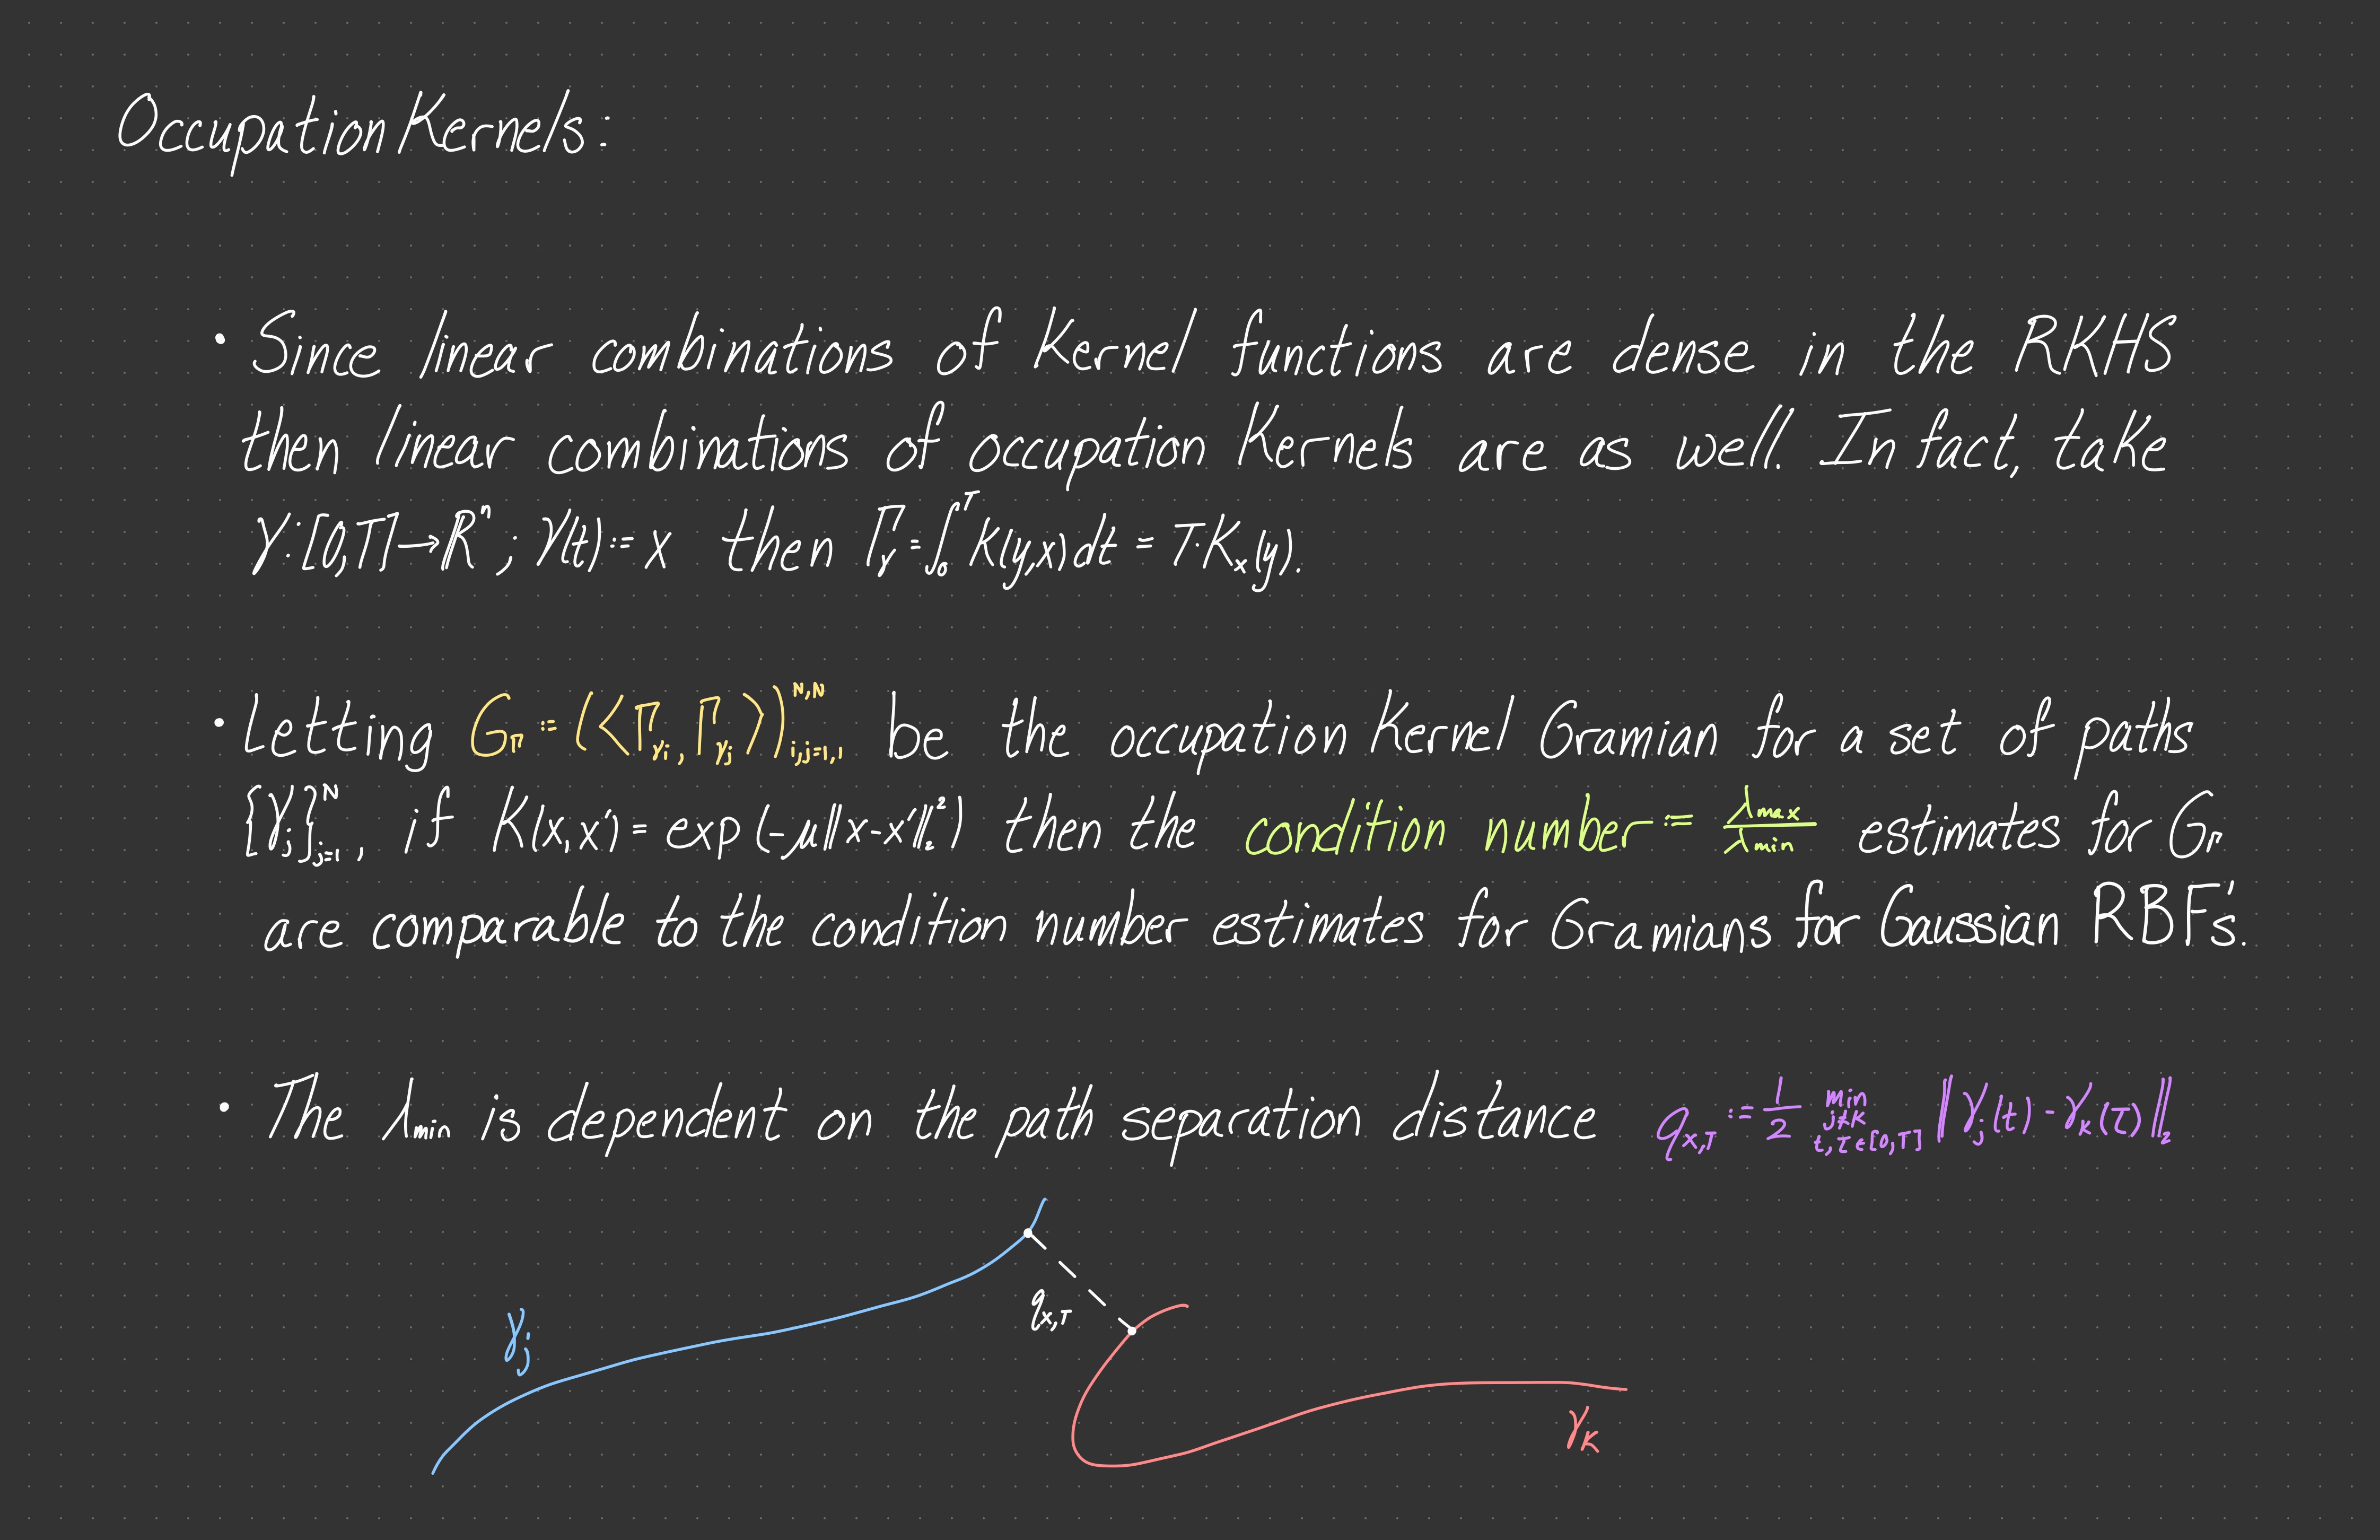 Occupation Kernels:
• Since linear combinations of Kernel functions are dense in the RKHS
then linear combinations of occupation Kernels are as well. In fact, take
γ:[0,T]→ℝⁿ; γ(t):=x then Γ_γ=∫₀ᵀK(y,x)dt=T·K_x(y).
• Letting G_Γ:=(<Γ_γᵢ,Γ_γⱼ>)^{N,N}_{i,j=1,1} be the occupation Kernel Gramian for a set of paths
{γⱼ}^N_{j=1}, if K(x,x')=exp(-μ||x-x'||²₂) then the condition number:=λmax/λmin estimates for G_Γ
are comparable to the condition number estimates for Gramians for Gaussian RBF's.
• The λmin is dependent on the path separation distance q_{x,T}:=1/2 min_{j≠k t,τ∈[0,T]} ||γⱼ(t)-γₖ(τ)||₂
q_{x,T}
γⱼ
γₖ